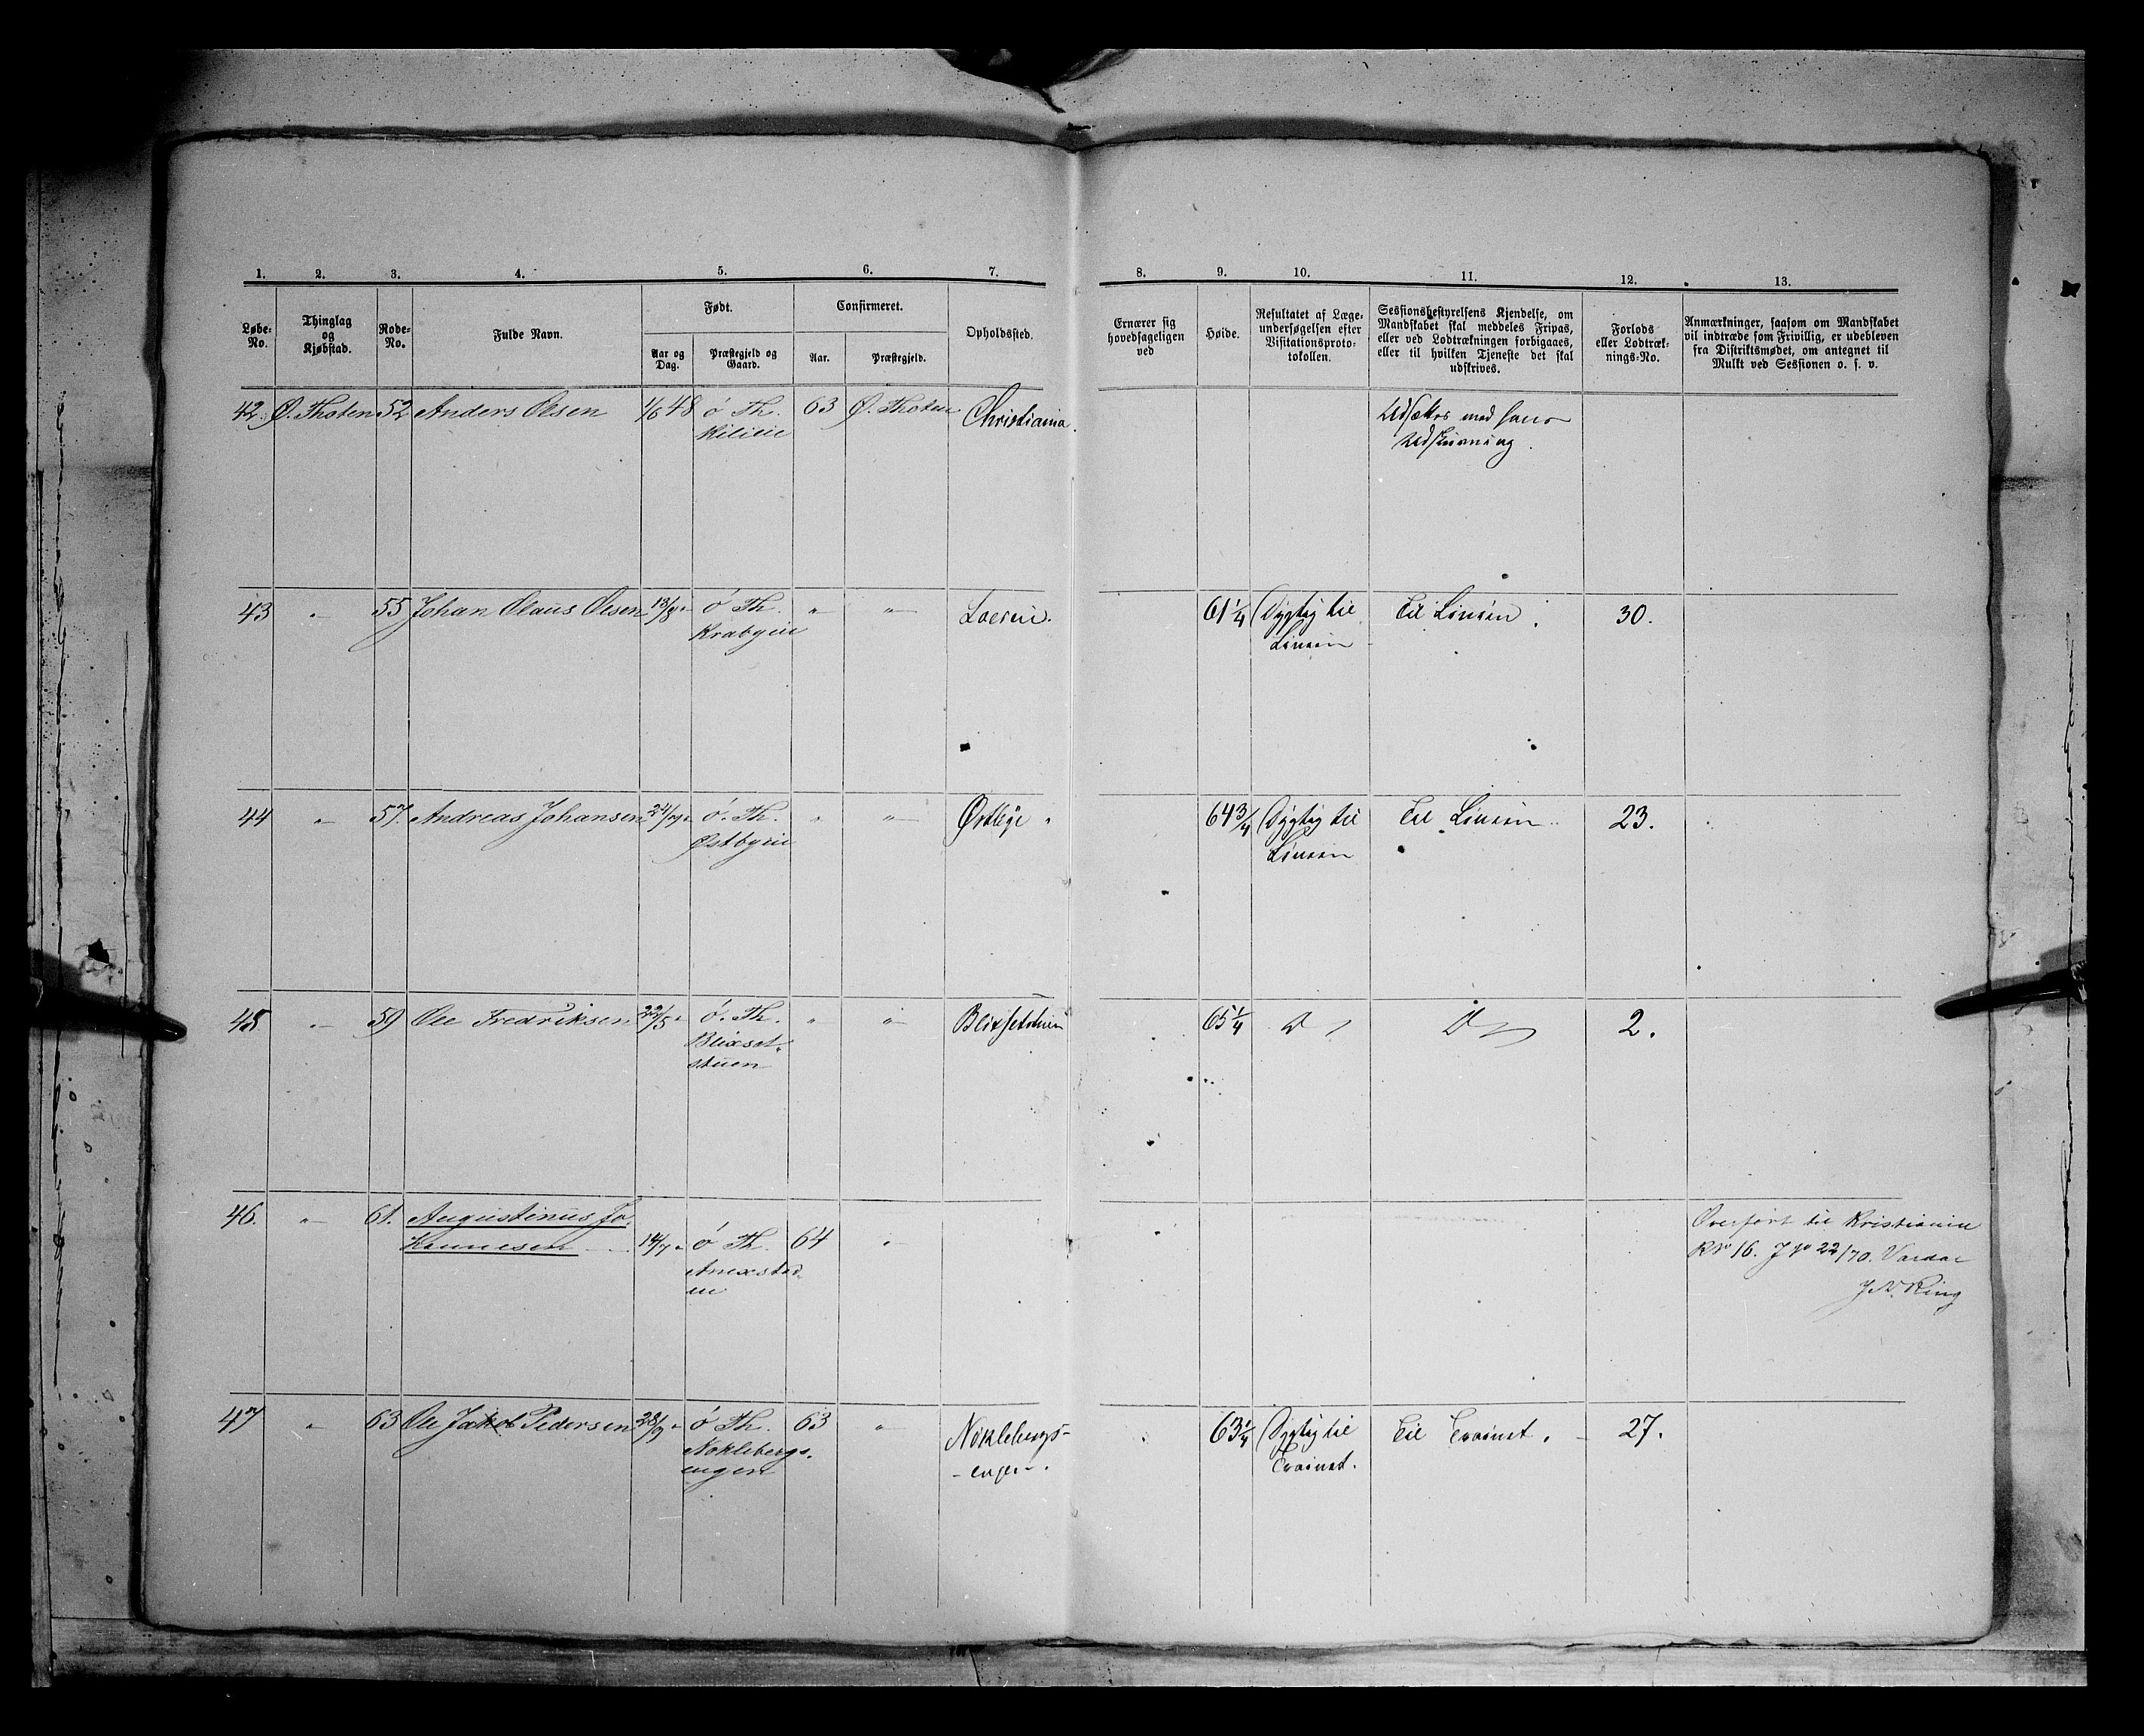 1. 2. 3. 4. 5. 6. 7. 8. 9. 10. 11. 12. 13.
Løbe-No.
Thinglag og Kjøbstad.
Rode-No.
Fulde Navn.
Født.
Aar og Dag.
Præstegjeld og Gaard.
Confirmeret.
Aar.
Præstegjeld.
Opholdssted.
Ernærer sig hovedsageligen ved
Høide.
Resultatet af Læge-undersøgelsen efter Visitationsproto-tokollen.
Sessionsbestyrelsens Kjendelse, om Mandskabet skal meddeles Fripas, eller ved Lodtrækningen forbigaaes, eller til hvilken Tjeneste det skal udskrives.
Forlods eller Lodtræk-nings-No.
Anmærkninger, saasom om Mandskabet vil indtræde som Frivillig, er udebleven fra Distriktsmødet, om antegnet til Mulkt ved Sessionen o. s. v.
42. Ø. Thoten 52 Anders Olsen 1/6 48 ø Th. 63 Ø. Thoten Christiania. Udsættes med hans
Udskrivning.
43 " 55 Johan Olaus Olsen 13/8 " Ø Th. " " 61 1/4 Dygtig til Til Linien. 30.
Krabyeie Linien
44 " 57. Andreas Johansen 24/7 " ø. Th. " " Østbye 64 3/4 Dygtig til Til Linien 23.
Østbyeie Linien
45 " 59 Ole Fredriksen 22/5 " ø. Th. " " Blixsetstuen 65 1/4 D D 2.
Blixset-
stuen
46. " 61. Augustinus Jo- Overført til Kristiania
hannesen 14/7 " ø Th. 64 " R No 16. J No 22/70. Vardal
en J. N. Ring
47 " 63 Ole Jakob Pedersen 28/9 " ø Th. 63 " Nøklebergs- 63 1/4 Dygtig til Til Trainet. 27.
Nøklebergs- -engen. Trainet.
engen